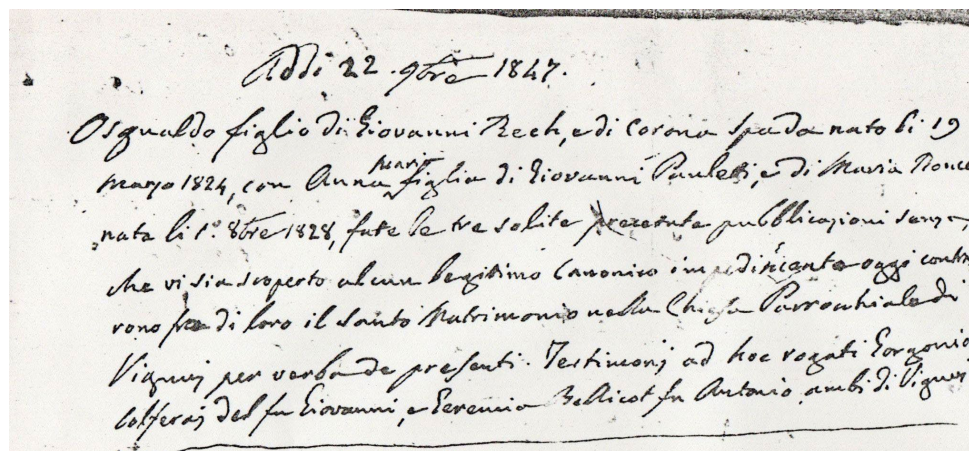 Addi 22. 9bre 1847.
Osgualdo figlio di Giovanni Rech, e di Corona Spada nato li 19
marzo 1824, con Anna Maria figlia di Giovanni Pauletti, e di Maria
nata li 1° 8bre 1828, fate le tre solite pubblicazioni senza
che vi sia scoperto alcun legitimo Canonico impedimento oggi contra
rono fra di loro il Santo Matrimonio nella Chiesa Parrochiale di
Vignui per verba de presenti. Testimonj ad hoc rogati Gorgonio
del fu Giovanni, e Geremia Bellicot fu Antonio ambi di Vignui